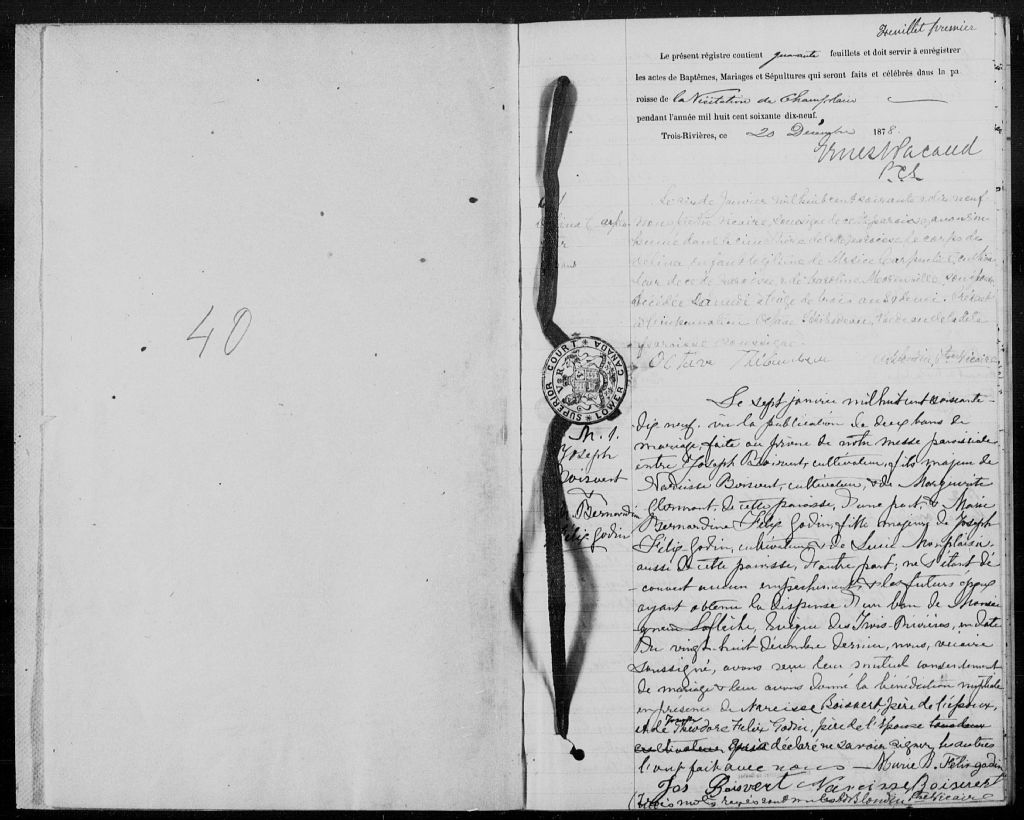 40
Feuillet premier
Le présent régistre contient quarante feuillets et doit servir à enrégistrer
les actes de Baptêmes, Mariages et Sépultures qui seront faits et célébrés dans la pa
roisse de la Visitation de Champlain
pendant l'année mil huit cent soixante dix-neuf.
Trois-Rivières, ce 20 Décembre 1878.
Ernest Pacaud
P.C.S.
Le cinq Janvier mil huit cent soixante & dix neuf
nous prêtre, vicaire, soussigné de cette paroisse, avons in
humé dans le cimetière de cette paroisse, le corps de
enfant légitime de Moïse Carpentier, cultiva
teur de cette paroisse & de Caroline
décédée samedi âgée de trois ans & demi. Présents
à l'inhumation Octave Thibaudeau, bedeau de la dite
paroisse soussigné.
Octave Thibaudeau Ptre Vicaire
SUPERIOR COURT LOWER CANADA
M. 1.
Joseph
Boisvert
&
M. Bernardine
Félix Godin
Le sept janvier mil huit cent soixante-
dix neuf, vu la publication de deux bans de
mariage faite au prône de notre messe paroissiale
entre Joseph Boisvert, cultivateur, fils majeur de
Narcisse Boisvert, cultivateur, & de Marguerite
Clermont, de cette paroisse, d'une part; & Marie
Bernardine Félix Godin, fille majeure de Joseph
Félix Godin, cultivateur & de Lucie Monplaisir
aussi de cette paroisse, d'autre part; ne s'étant dé
couvert aucun empêchement & les futurs époux
ayant obtenu la dispense d'un ban de Monsei
gneur Laflèche, Evêque des Trois-Rivières, en date
du vingt-huit décembre dernier, nous, vicaire
soussigné, avons reçu leur mutuel consentement
de mariage & leur avons donné la bénédiction nuptiale
en présence de Narcisse Boisvert, père de l'époux,
et de Joseph Théodore Félix Godin, père de l'épouse tous deux
cultivateurs qui a déclaré ne savoir signer, les autres
l'ont fait avec nous — Marie B. Félix Godin
Jos Boisvert Narcisse Boisvert
(Trois mots rayés sont nuls) Blondin Ptre Vicaire